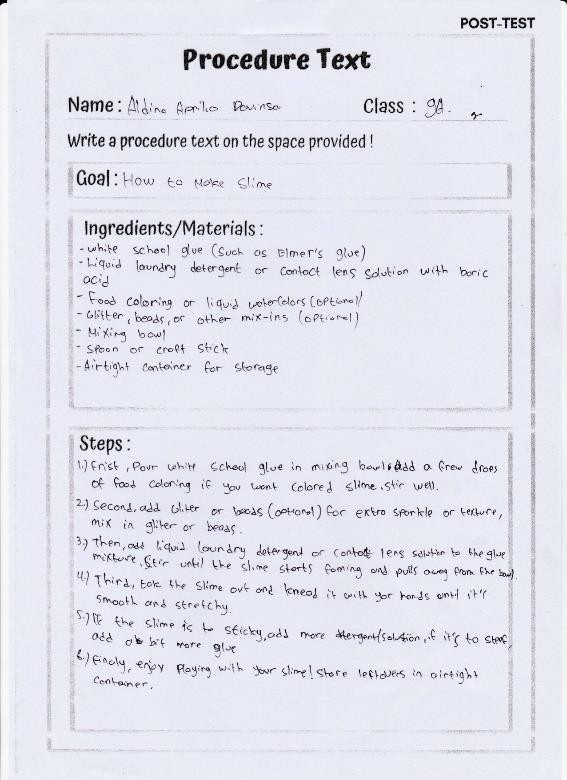 POST-TEST
Procedure Text
Name : Aldino Aprilio Class : 9A.
Write a procedure text on the space provided !
Goal : How to Make Slime
Ingredients/Materials :
- White school glue (Such as Elmer's glue)
- Liquid laundry detergent or contact lens solution with boric
acid
- Food coloring or liquid watercolors (optional)
- Glitter, beads, or other mix-ins (optional)
- Mixing bowl
- Spoon or craft stick
- Airtight container for storage
Steps :
1.) Frist, Pour white school glue in mixing bowl. Add a frew drops
of food coloring if you want colored slime. stir well.
2.) Second, add Gliter or beads (optional) for extra sparkle or texture,
mix in gliter or beads.
3.) Then, add liquid laundry detergent or contact lens solution to the glue
mixture. Stir until the slime starts foming and pulls away from the bowl.
4.) Third, tak the slime out and knead it with yor hands until it's
smooth and stretchy.
5.) If the slime is to sticky, add more detergent/solution, if it's to
add a bit more glue
6.) Finaly, enjoy Playing with your slime! Store leftovers in airtight
container.